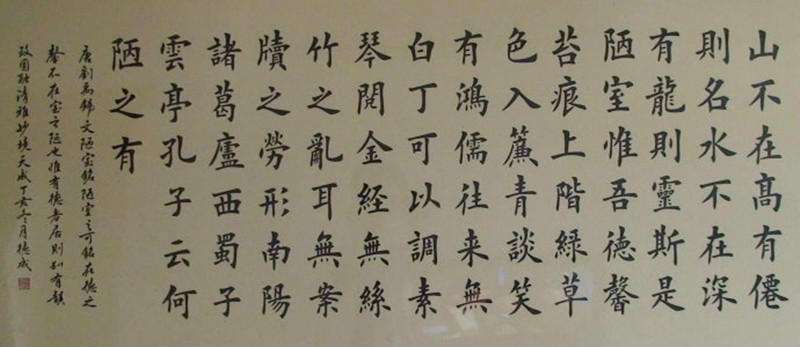 山不在髙有僊
則名水不在深
有龍則靈斯是
陋室惟吾徳馨
苔痕上階緑草
色入簾青談笑
有鴻儒往来無
白丁可以調素
琴閲金経無絲
竹之亂耳無案
牘之勞形南陽
諸葛廬西蜀子
雲亭孔子云何
陋之有
唐劉禹錫文陋室銘陋室之可銘在徳之
馨不在室之陋也惟有徳者居則知有韻
清雅妙境天成丁亥三月徳成